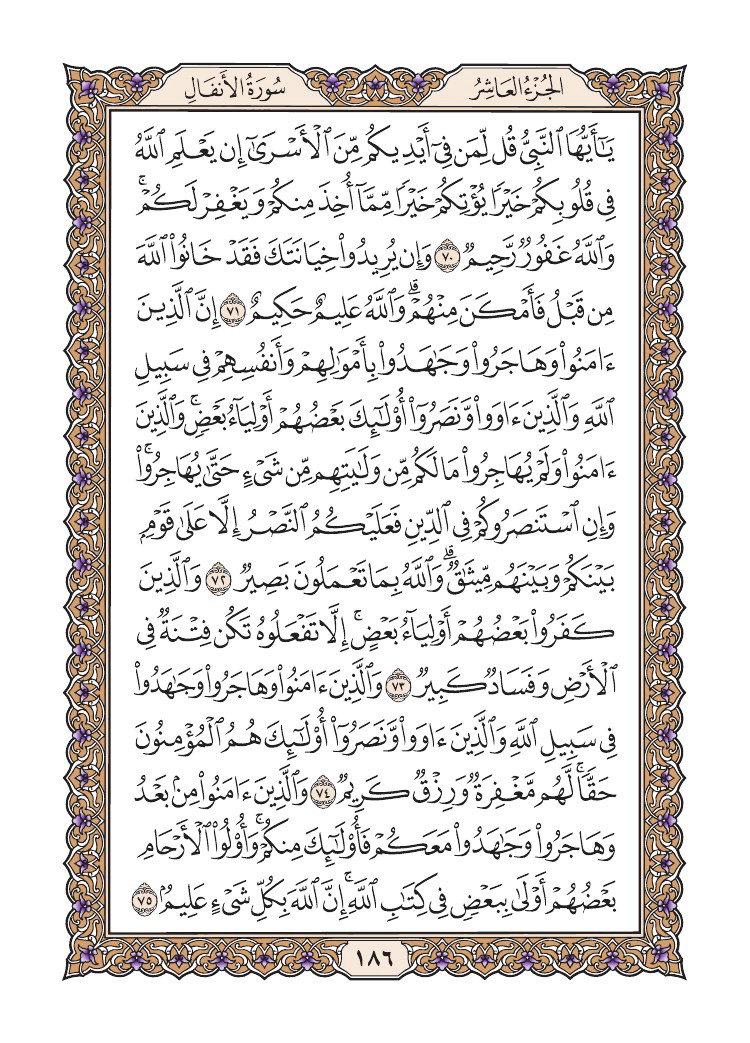 الجُزْءُ العَاشِرُ
سُورَةُ الأَنفَالِ
يَٰٓأَيُّهَا ٱلنَّبِيُّ قُل لِّمَن فِيٓ أَيۡدِيكُم مِّنَ ٱلۡأَسۡرَىٰٓ إِن يَعۡلَمِ ٱللَّهُ
فِي قُلُوبِكُمۡ خَيۡرٗا يُؤۡتِكُمۡ خَيۡرٗا مِّمَّآ أُخِذَ مِنكُمۡ وَيَغۡفِرۡ لَكُمۡۚ
وَٱللَّهُ غَفُورٞ رَّحِيمٞ ٧٠ وَإِن يُرِيدُواْ خِيَانَتَكَ فَقَدۡ خَانُواْ ٱللَّهَ
مِن قَبۡلُ فَأَمۡكَنَ مِنۡهُمۡۗ وَٱللَّهُ عَلِيمٌ حَكِيمٌ ٧١ إِنَّ ٱلَّذِينَ
ءَامَنُواْ وَهَاجَرُواْ وَجَٰهَدُواْ بِأَمۡوَٰلِهِمۡ وَأَنفُسِهِمۡ فِي سَبِيلِ
ٱللَّهِ وَٱلَّذِينَ ءَاوَواْ وَّنَصَرُوٓاْ أُوْلَٰٓئِكَ بَعۡضُهُمۡ أَوۡلِيَآءُ بَعۡضٖۚ وَٱلَّذِينَ
ءَامَنُواْ وَلَمۡ يُهَاجِرُواْ مَا لَكُم مِّن وَلَٰيَتِهِم مِّن شَيۡءٍ حَتَّىٰ يُهَاجِرُواْۚ
وَإِنِ ٱسۡتَنصَرُوكُمۡ فِي ٱلدِّينِ فَعَلَيۡكُمُ ٱلنَّصۡرُ إِلَّا عَلَىٰ قَوۡمِۭ
بَيۡنَكُمۡ وَبَيۡنَهُم مِّيثَٰقٞۗ وَٱللَّهُ بِمَا تَعۡمَلُونَ بَصِيرٞ ٧٢ وَٱلَّذِينَ
كَفَرُواْ بَعۡضُهُمۡ أَوۡلِيَآءُ بَعۡضٍۚ إِلَّا تَفۡعَلُوهُ تَكُن فِتۡنَةٞ فِي
ٱلۡأَرۡضِ وَفَسَادٞ كَبِيرٞ ٧٣ وَٱلَّذِينَ ءَامَنُواْ وَهَاجَرُواْ وَجَٰهَدُواْ
فِي سَبِيلِ ٱللَّهِ وَٱلَّذِينَ ءَاوَواْ وَّنَصَرُوٓاْ أُوْلَٰٓئِكَ هُمُ ٱلۡمُؤۡمِنُونَ
حَقّٗاۚ لَّهُم مَّغۡفِرَةٞ وَرِزۡقٞ كَرِيمٞ ٧٤ وَٱلَّذِينَ ءَامَنُواْ مِنۢ بَعۡدُ
وَهَاجَرُواْ وَجَٰهَدُواْ مَعَكُمۡ فَأُوْلَٰٓئِكَ مِنكُمۡۚ وَأُوْلُواْ ٱلۡأَرۡحَامِ
بَعۡضُهُمۡ أَوۡلَىٰ بِبَعۡضٖ فِي كِتَٰبِ ٱللَّهِۚ إِنَّ ٱللَّهَ بِكُلِّ شَيۡءٍ عَلِيمُۢ ٧٥
١٨٦